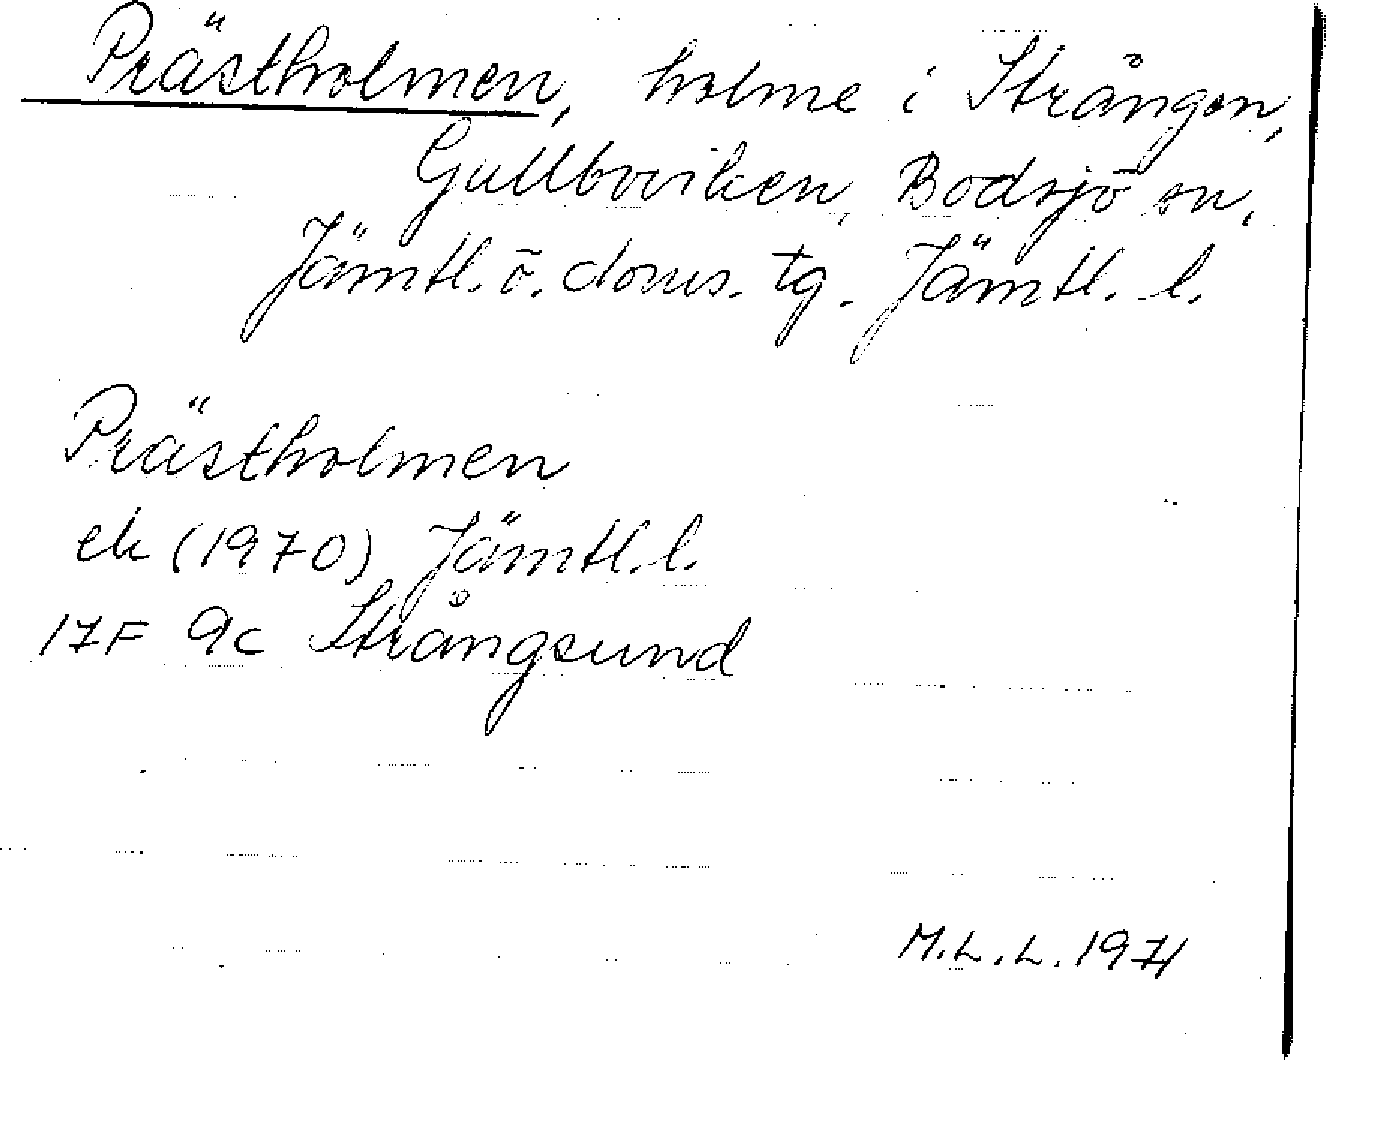 Prästholmen, holme i Strången,
Gullboviken, Bodsjö sn,
Jämtl. ö. doms. tg. Jämtl. l.
Prästholmen
ek (1970) Jämtl. l.
17F 9c Strångsund
M.L.L. 1971